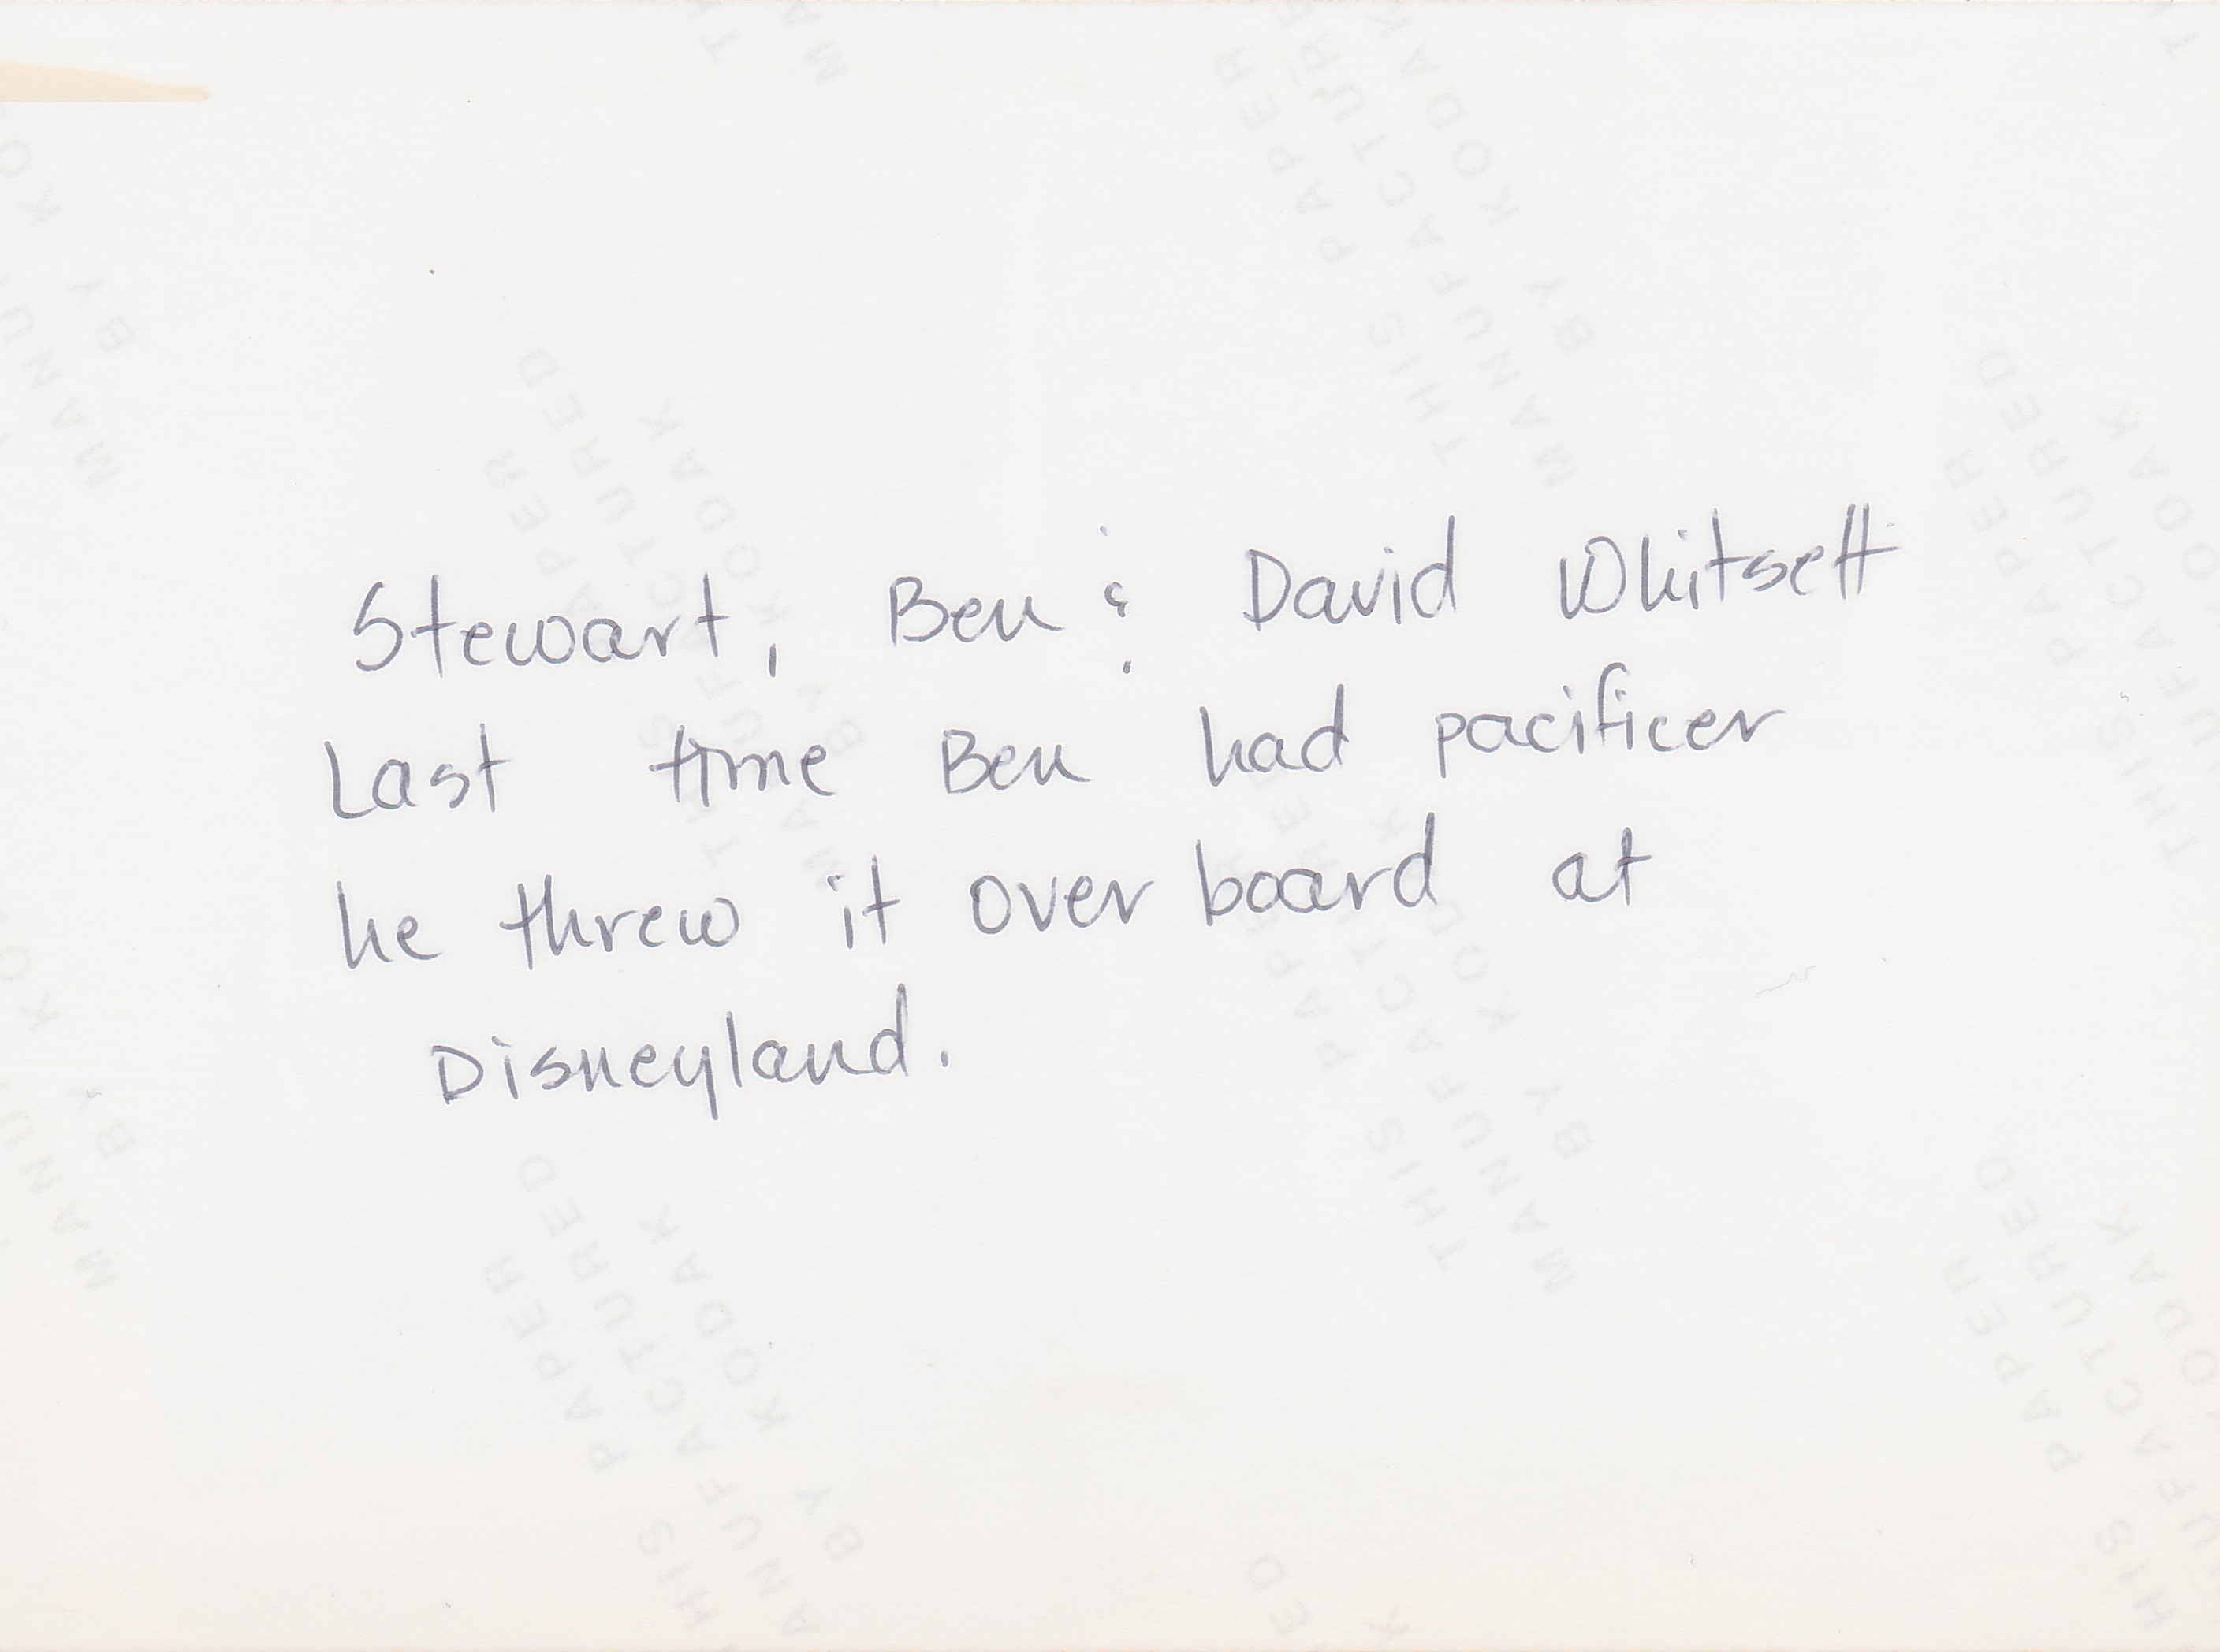 Stewart, Ben & David Whitsett
Last time Ben had pacificer
he threw it over board at
Disneyland.
THIS PAPER
MANUFACTURED
BY KODAK